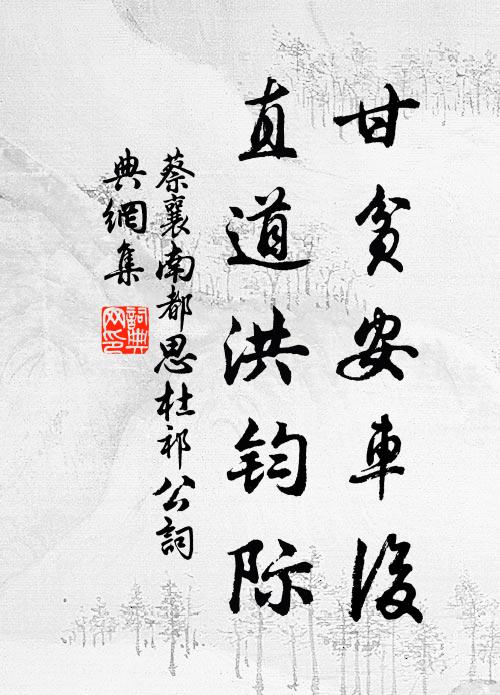 甘貧安車後
直道洪鈞际
蔡襄南都思杜祁公詞
典網集
詞典网印